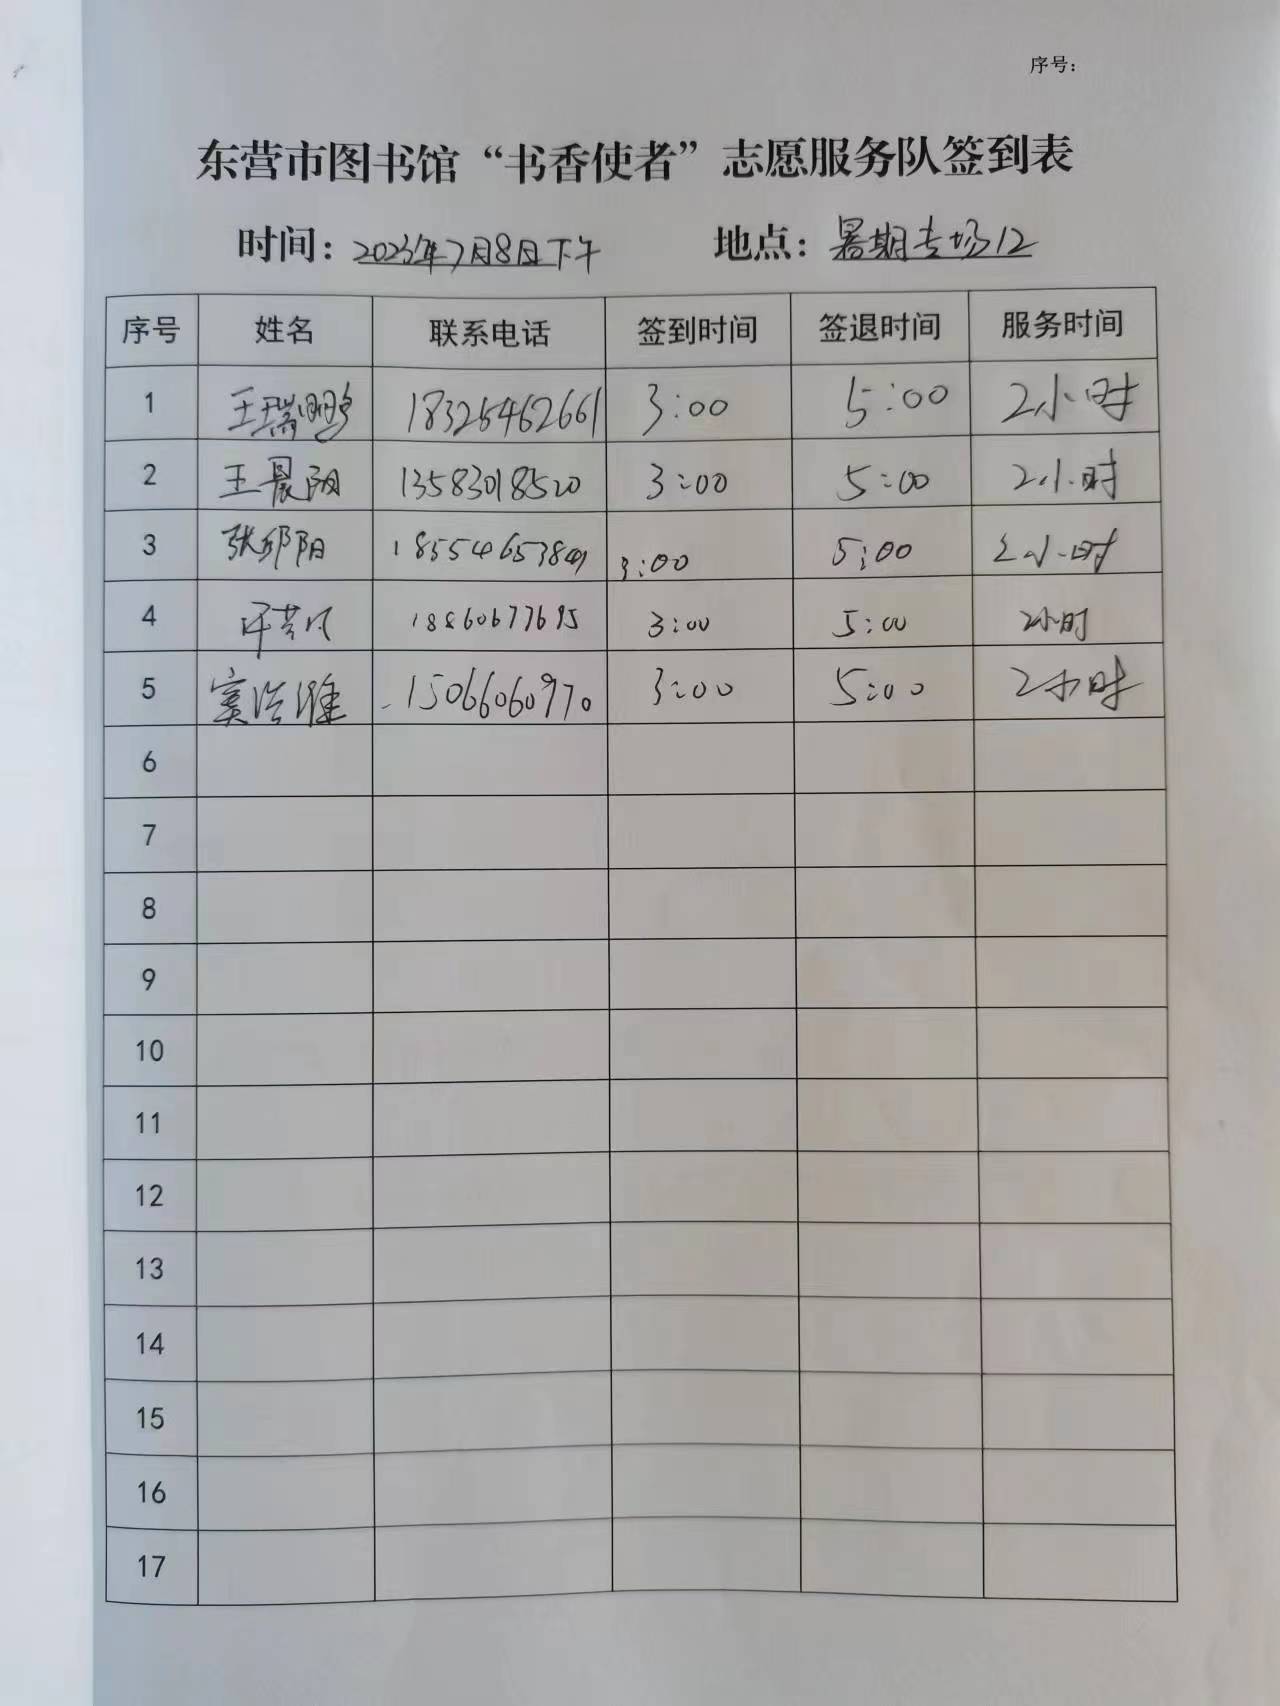 序号：
东营市图书馆“书香使者”志愿服务队签到表
时间：2023年7月8日下午 地点：暑期专场12
序号 姓名 联系电话 签到时间 签退时间 服务时间
1 王瑞鹏 18325462661 3:00 5:00 2小时
2 王晨阳 13583018520 3:00 5:00 2小时
3 张邱阳 3:00 5:00 2小时
4 18860677695 3:00 5:00 2小时
5 窦浩维 15066060970 3:00 5:00 2小时
6
7
8
9
10
11
12
13
14
15
16
17